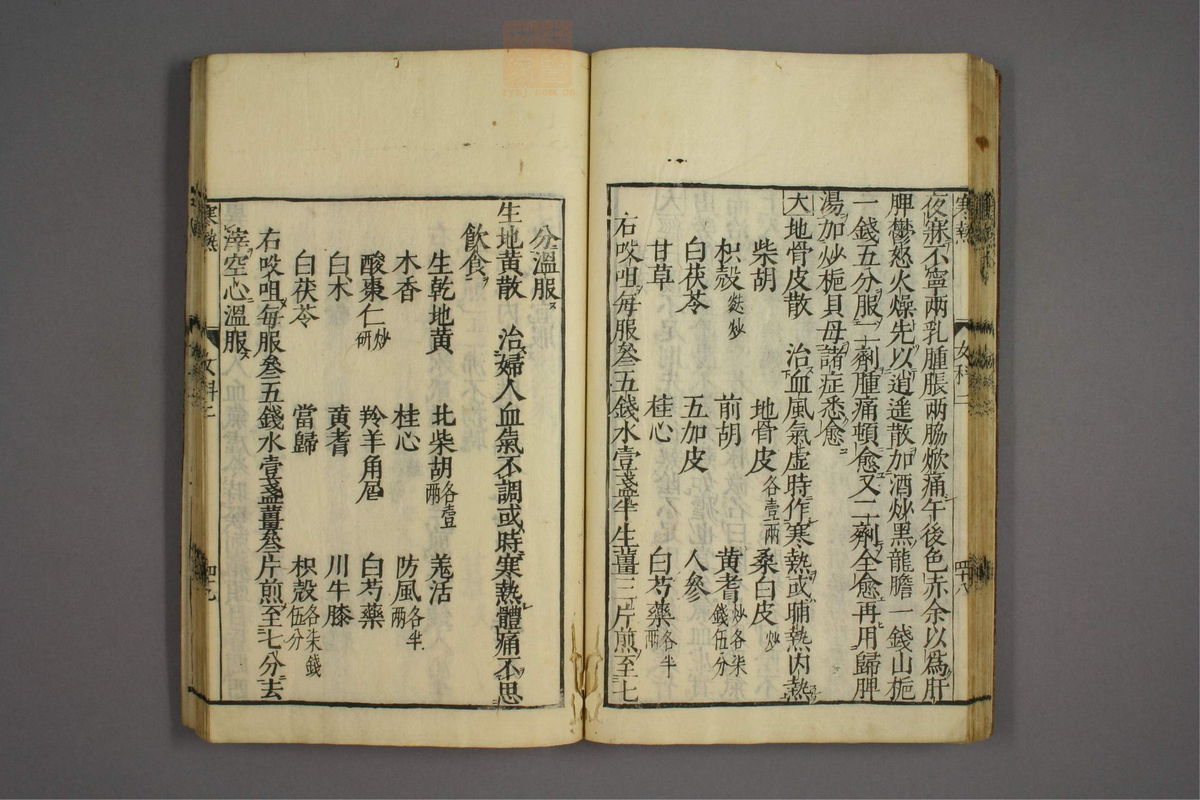 夜寐不寧兩乳腫脹兩脇焮痛午後色赤余以爲肝
脾鬱怒火燥先以逍遙散加酒炒黑龍膽一錢山梔
一錢五分服二劑腫痛頓愈又二劑全愈再用歸脾
湯加炒梔貝母諸症悉愈
大地骨皮散 治血風氣虛時作寒熱或晡熱內熱
柴胡 地骨皮各壹兩 桑白皮炒
枳殼麩炒 前胡 黃耆炒各柒錢伍分
白茯苓 五加皮 人參
甘草 桂心 白芍藥各半兩
右㕮咀每服叄五錢水壹盞半生薑三片煎至七
寒熱 女科二 四十八
分溫服
生地黃散 治婦人血氣不調或時寒熱體痛不思
飲食
生乾地黃 北柴胡各壹兩 羌活
木香 桂心 防風各半兩
酸棗仁炒研 羚羊角屑 白芍藥
白朮 黃耆 川牛膝
白茯苓 當歸 枳殼各柒錢伍分
右㕮咀每服叄五錢水壹盞薑叄片煎至七分去
滓空心溫服
寒熱 女科二 四十九
zysj.com.cn